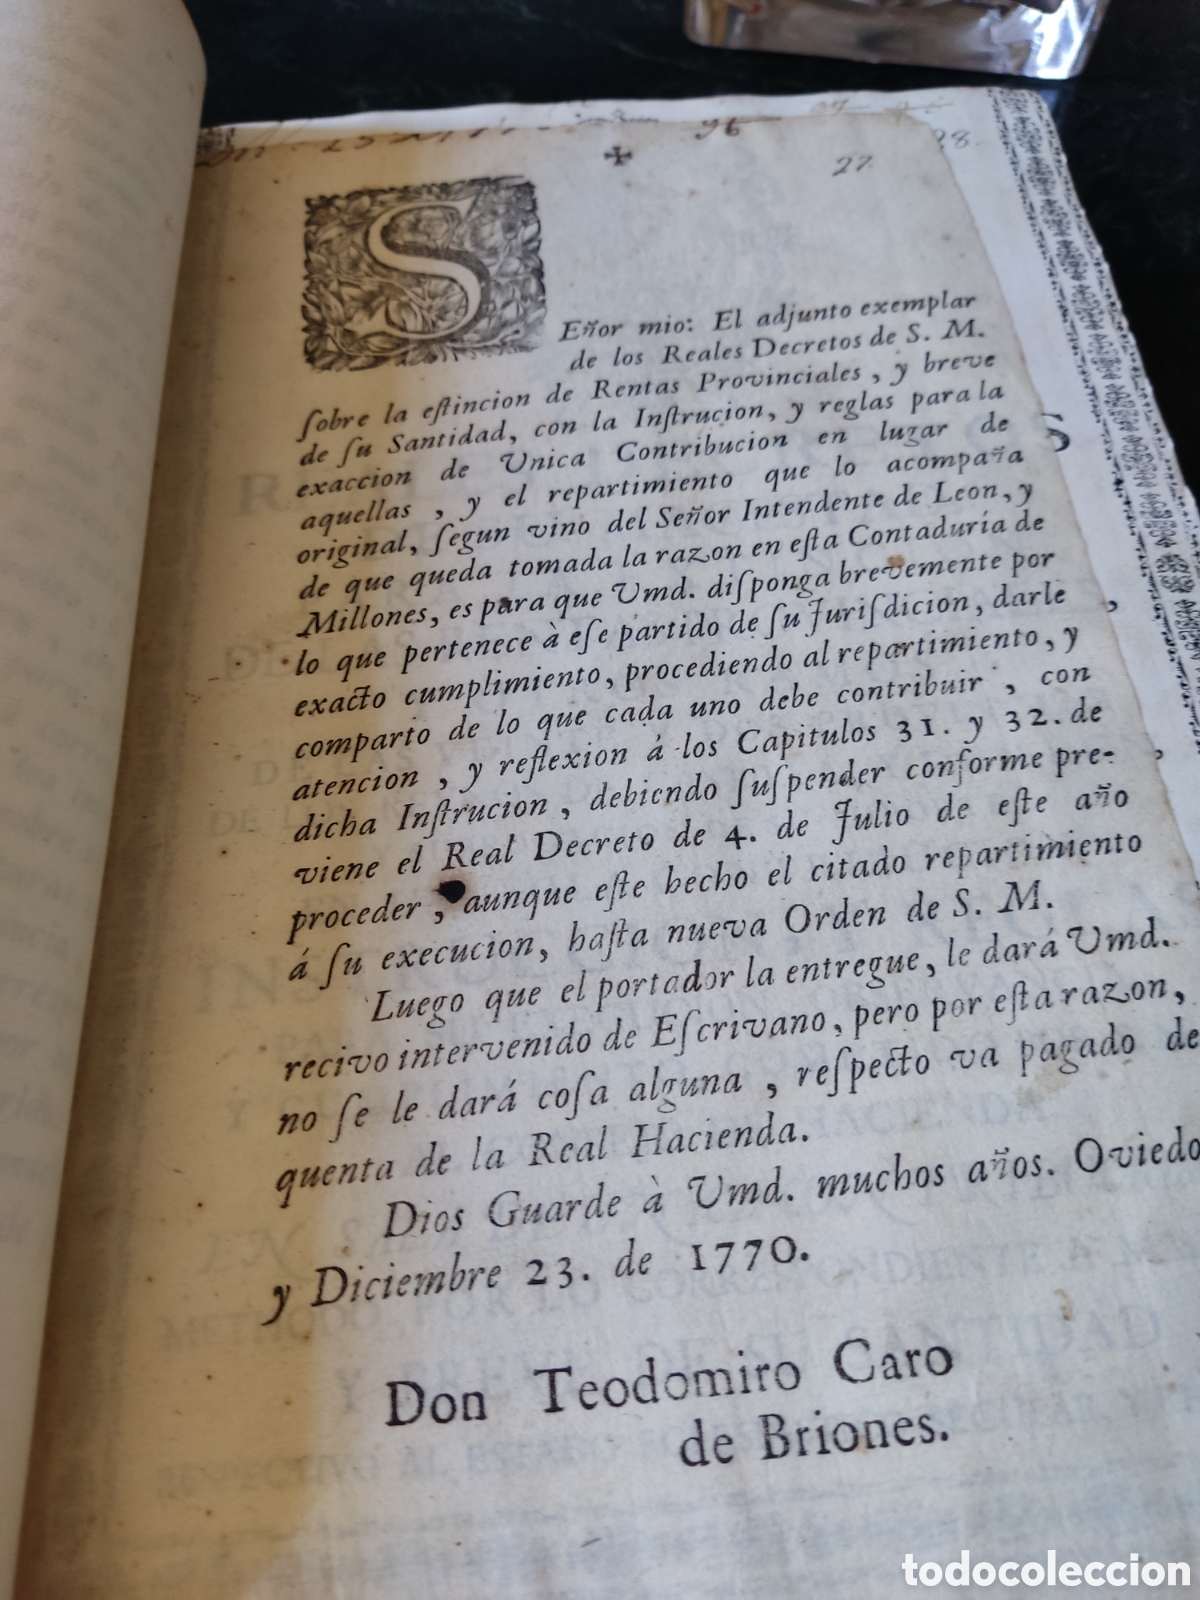 96
28.
27.
SEñor mio: El adjunto exemplar
de los Reales Decretos de S. M.
ſobre la eſtincion de Rentas Provinciales, y breve
de ſu Santidad, con la Inſtrucion, y reglas para la
exaccion de Unica Contribucion en lugar de
aquellas, y el repartimiento que lo acompaña
original, ſegun vino del Señor Intendente de Leon, y
de que queda tomada la razon en eſta Contaduría de
Millones, es para que Vmd. diſponga brevemente por
lo que pertenece à eſe partido de ſu Juriſdicion, darle
exacto cumplimiento, procediendo al repartimiento, y
comparto de lo que cada uno debe contribuir, con
atencion, y reflexion á los Capitulos 31. y 32. de
dicha Inſtrucion, debiendo ſuſpender conforme pre-
viene el Real Decreto de 4. de Julio de eſte año
proceder, aunque eſte hecho el citado repartimiento
á ſu execucion, haſta nueva Orden de S. M.
Luego que el portador la entregue, le dará Vmd.
recivo intervenido de Eſcrivano, pero por eſta razon,
no ſe le dará coſa alguna, reſpecto va pagado de
quenta de la Real Hacienda.
Dios Guarde à Vmd. muchos años. Oviedo
y Diciembre 23. de 1770.
Don Teodomiro Caro
de Briones.
todocoleccion